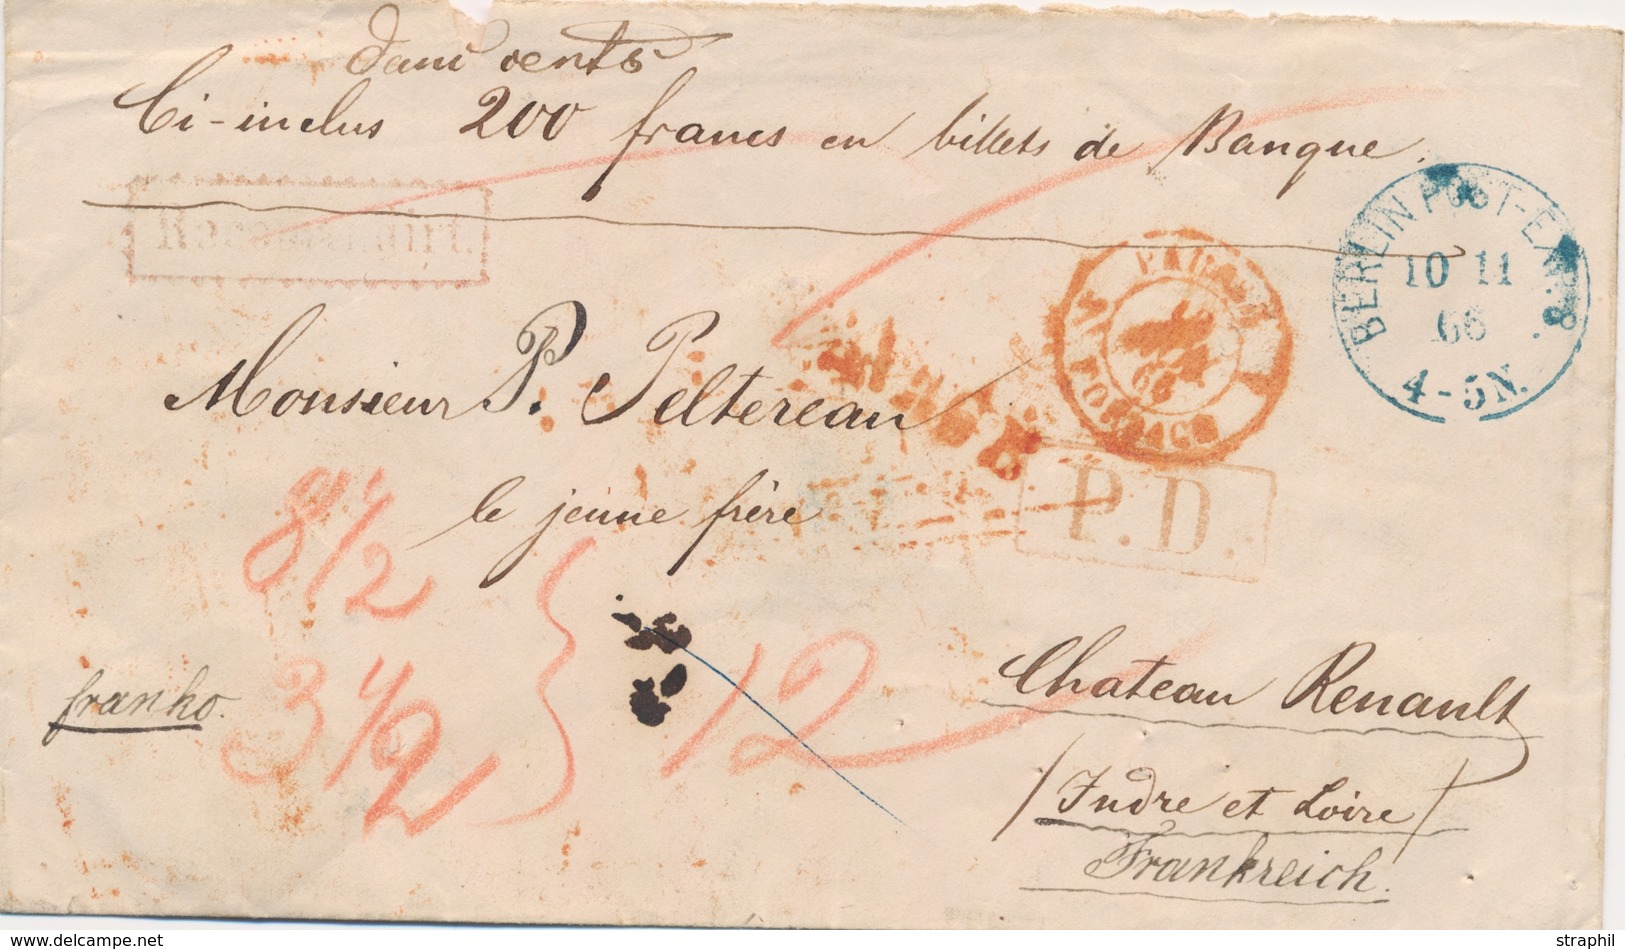 Ci-inclus 200 francs en billets de Banque.
Recommandirt.
BERLIN POST-EXP. 8
10 11
66
4-5N.
FORBACH
66
P.D.
Monsieur P. Peltereau
le jeune frère
8 1/2
3 1/2
12
franko.
Chateau Renault
/Indre et Loire/
Frankreich.
straphil